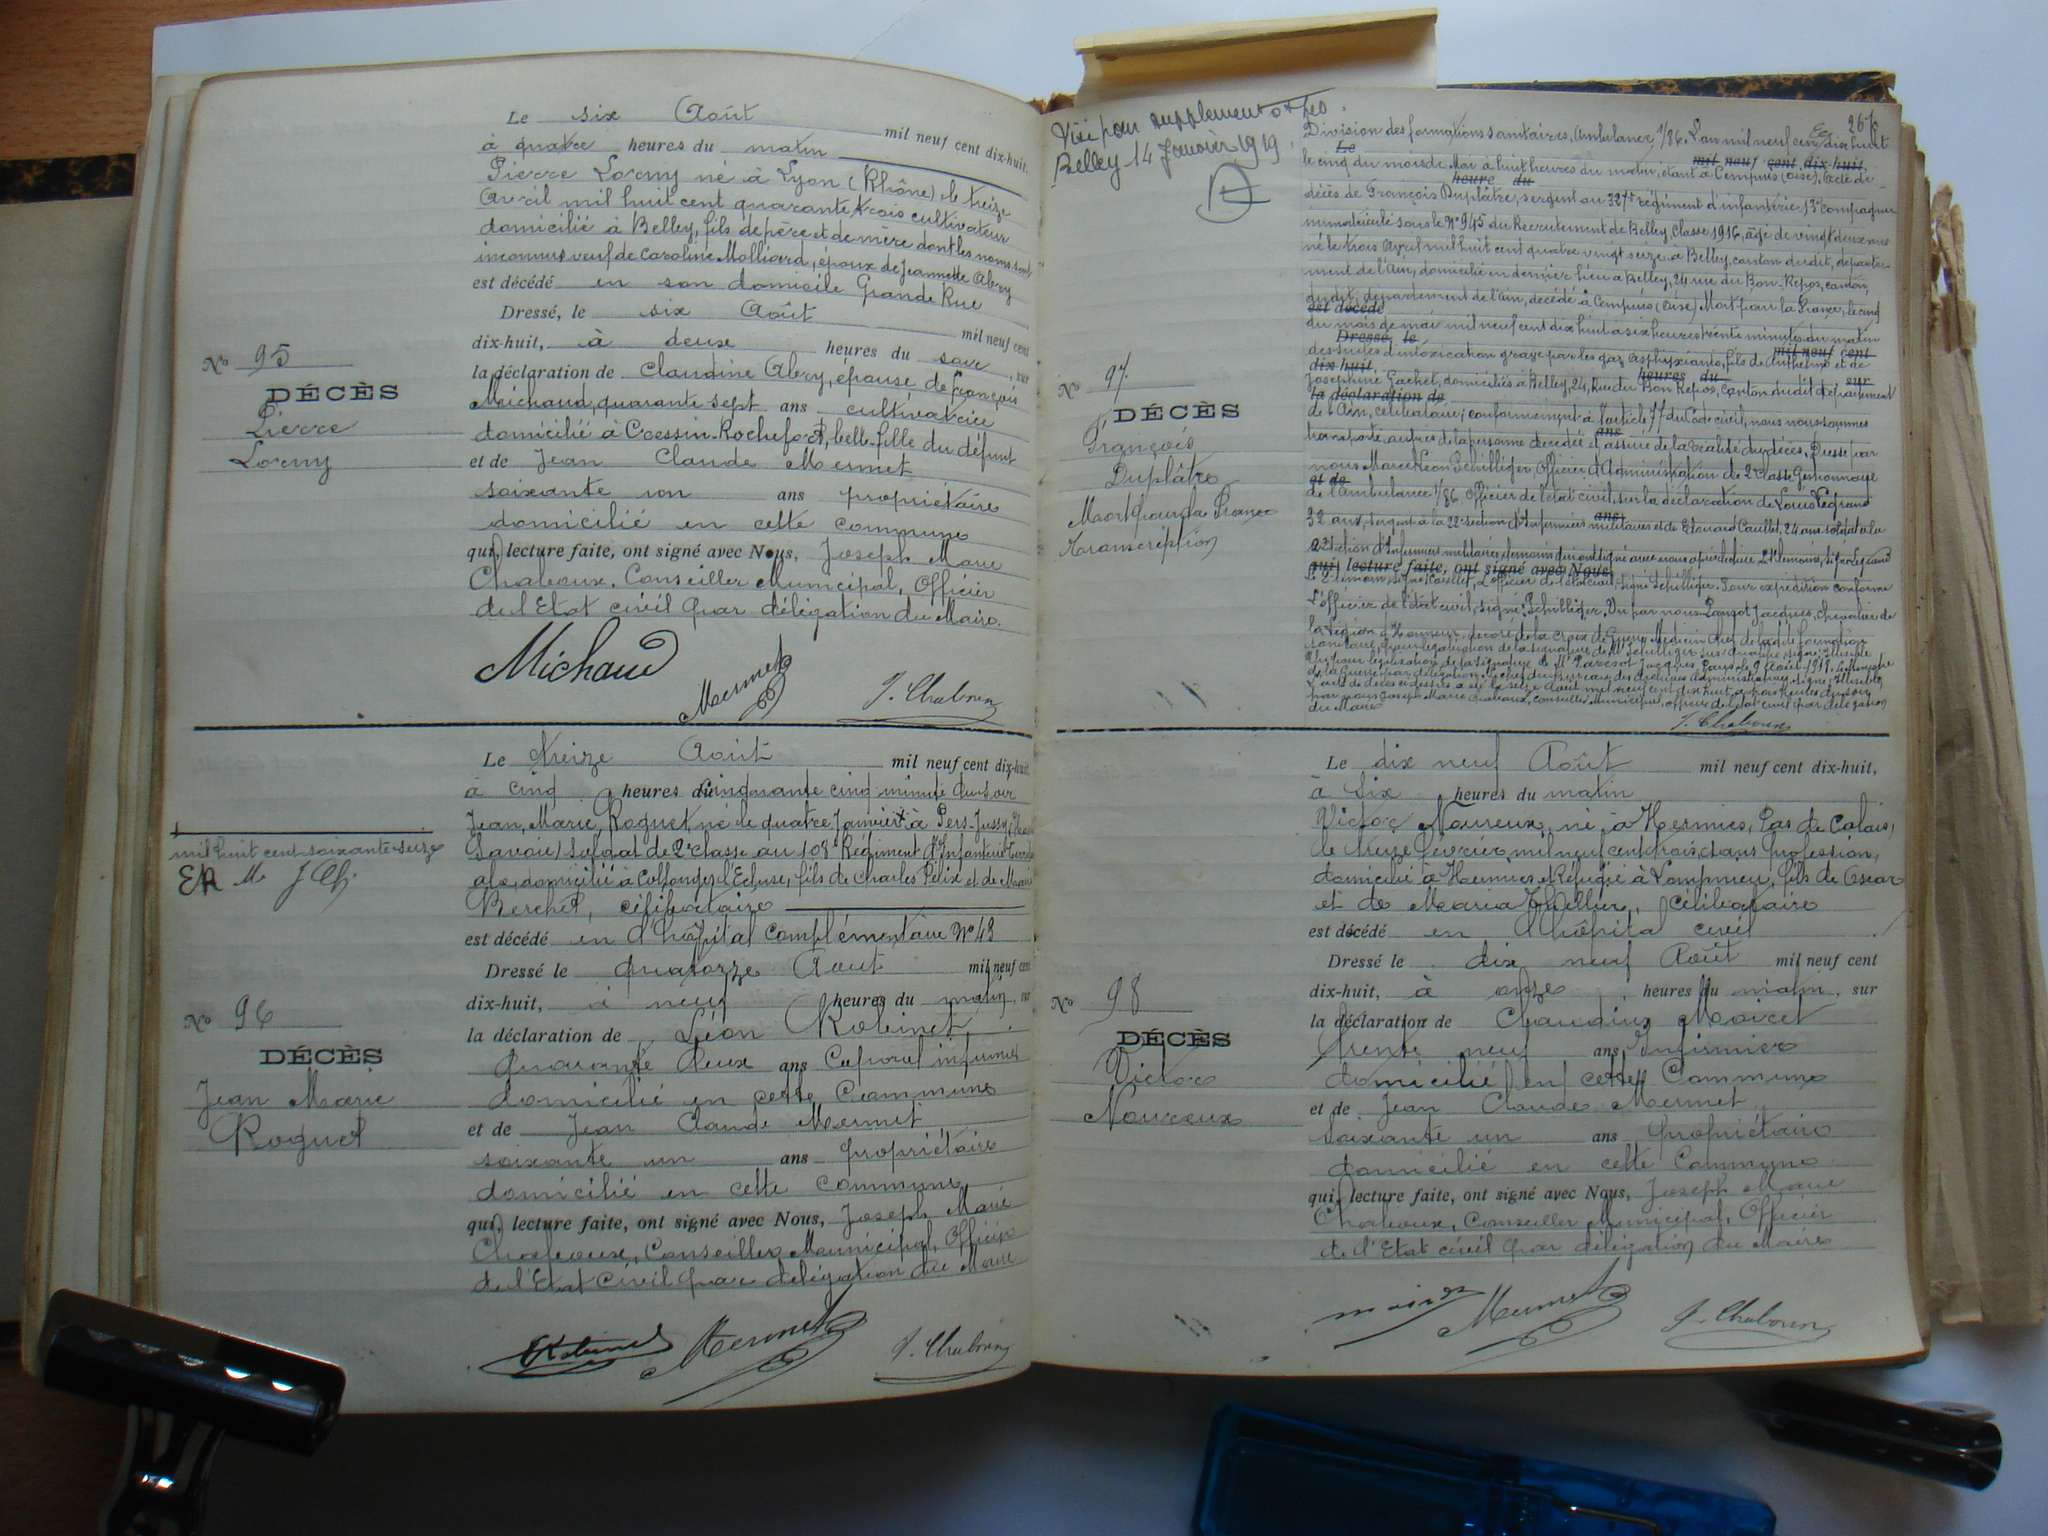 Le six Août mil neuf cent dix-huit,
à quatre heures du matin
Pierre Lorny né à Lyon (Rhône) le treize
Avril mil huit cent quarante trois cultivateur
domicilié à Belley, fils de père et de mère dont les noms sont
inconnus, veuf de Caroline Molliard, époux de Jeannette Abry
est décédé en son domicile Grande Rue
Dressé, le six Août mil neuf cent
dix-huit, à deux heures du soir, sur
la déclaration de Claudine Abry, épouse de François
Michaud, quarante sept ans cultivatrice
domicilié à Cressin-Rochefort, belle-fille du défunt
et de Jean Claude Mermet
soixante un ans propriétaire
domicilié en cette commune
qui, lecture faite, ont signé avec Nous, Joseph Marie
Chaboux, Conseiller Municipal, Officier
de l'Etat civil par délégation du Maire.
Michaud Mermet J. Chaboux
No 95
DÉCÈS
Pierre
Lorny
Le treize Août mil neuf cent dix-huit,
à cinq heures du cinquante cinq minute du soir
Jean Marie Roguet né le quatre Janvier à Pers-Jussy (Haute
Savoie) soldat de 2e classe au 108e Régiment d'Infanterie Territori
ale, domicilié à Collonges l'Ecluse, fils de Charles Félix et de Marie
Berchet, célibataire
est décédé en l'hôpital Complémentaire No 43
Dressé le quatorze Août mil neuf cent
dix-huit, à neuf heures du matin, sur
la déclaration de Léon Robinet,
quarante deux ans Caporal infirmier
domicilié en cette Commune
et de Jean Claude Mermet
soixante un ans propriétaire
domicilié en cette commune
qui, lecture faite, ont signé avec Nous, Joseph Marie
Chaboux, Conseiller Municipal, Officier
de l'Etat Civil par délégation du Maire
Robinet Mermet J. Chaboux
mil huit cent soixante-seize
No 96
DÉCÈS
Jean Marie
Roguet
Visé pour supplément
Belley 14 Janvier 1919.
267
No 97
DÉCÈS
François
Duplâtre
Mort pour la France
Transcription
Division des formations sanitaires, Ambulance 1/86. L'an mil neuf cent dix huit
Le mil neuf cent dix-huit,
le cinq du mois de Mai à huit heures du matin, étant à Cempuis (Oise), Acte de
heure du
décès de François Duplatre, sergent au régiment d'infanterie 13e compagnie
immatriculé sous le No 945 du Recrutement de Belley Classe 1916, âgé de vingt deux ans
né le trois Avril mil huit cent quatre vingt seize à Belley, canton du dit, départe-
ment de l'Ain, domicilié en dernier lieu à Belley, 24 rue du Bon Repos, canton
du dit, département de l'Ain, décédé à Cempuis (Oise) Mort pour la France, le cinq
est décédé
du mois de mai mil neuf cent dix huit à six heures trente minutes du matin
Dressé le mil neuf cent
des suites d'intoxication grave par les gaz asphyxiants, fils de Anthelme et de
dix-huit heures du sur
Joséphine Gachet, domiciliés à Belley, 24, Rue du Bon Repos, canton du dit département
la déclaration de
de l'Ain, célibataire; conformément à l'article 77 du Code civil, nous nous sommes
ans
transporté auprès de la personne décédée et assuré de la réalité du décès, Dressé par
nous Marcel Léon Schilliger Officier d'Administration de 2e Classe Gestionnaire
et de
de l'ambulance 1/86 Officier de l'état civil, sur la déclaration de Louis Legrand
32 ans, sergent à la 22e section d'Infirmiers militaires et de Edouard Caullet, 24 ans soldat à la
ans
qui, lecture faite, ont signé avec Nous
L'officier de l'état civil, signé: Schilliger. Vu par nous Jacques, Chevalier de
la légion d'Honneur, décoré de la Croix de Guerre, Médecin Chef de la dite formation
par nous Joseph Marie Chaboux, Conseiller Municipal, officier de l'état civil par délégation
du Maire
J. Chaboux
Le dix neuf Août mil neuf cent dix-huit,
à Six heures du matin
Victor Noureux, né à Hermies, Pas de Calais,
le treize février mil neuf cent trois, sans profession,
domicilié à Hermies et Réfugié à Lompnieu, fils de Oscar
et de Maria Thellier, célibataire
est décédé en l'hôpital civil
Dressé le dix neuf Août mil neuf cent
dix-huit, à onze heures du matin, sur
la déclaration de Claudius Moiret
trente neuf ans, Infirmier
domicilié en cette Commune
et de Jean Claude Mermet
soixante un ans propriétaire
domicilié en cette Commune
qui, lecture faite, ont signé avec Nous, Joseph Marie
Chaboux, Conseiller Municipal, Officier
de l'Etat civil par délégation du Maire
Mermet J. Chaboux
No 98
DÉCÈS
Victor
Noureux